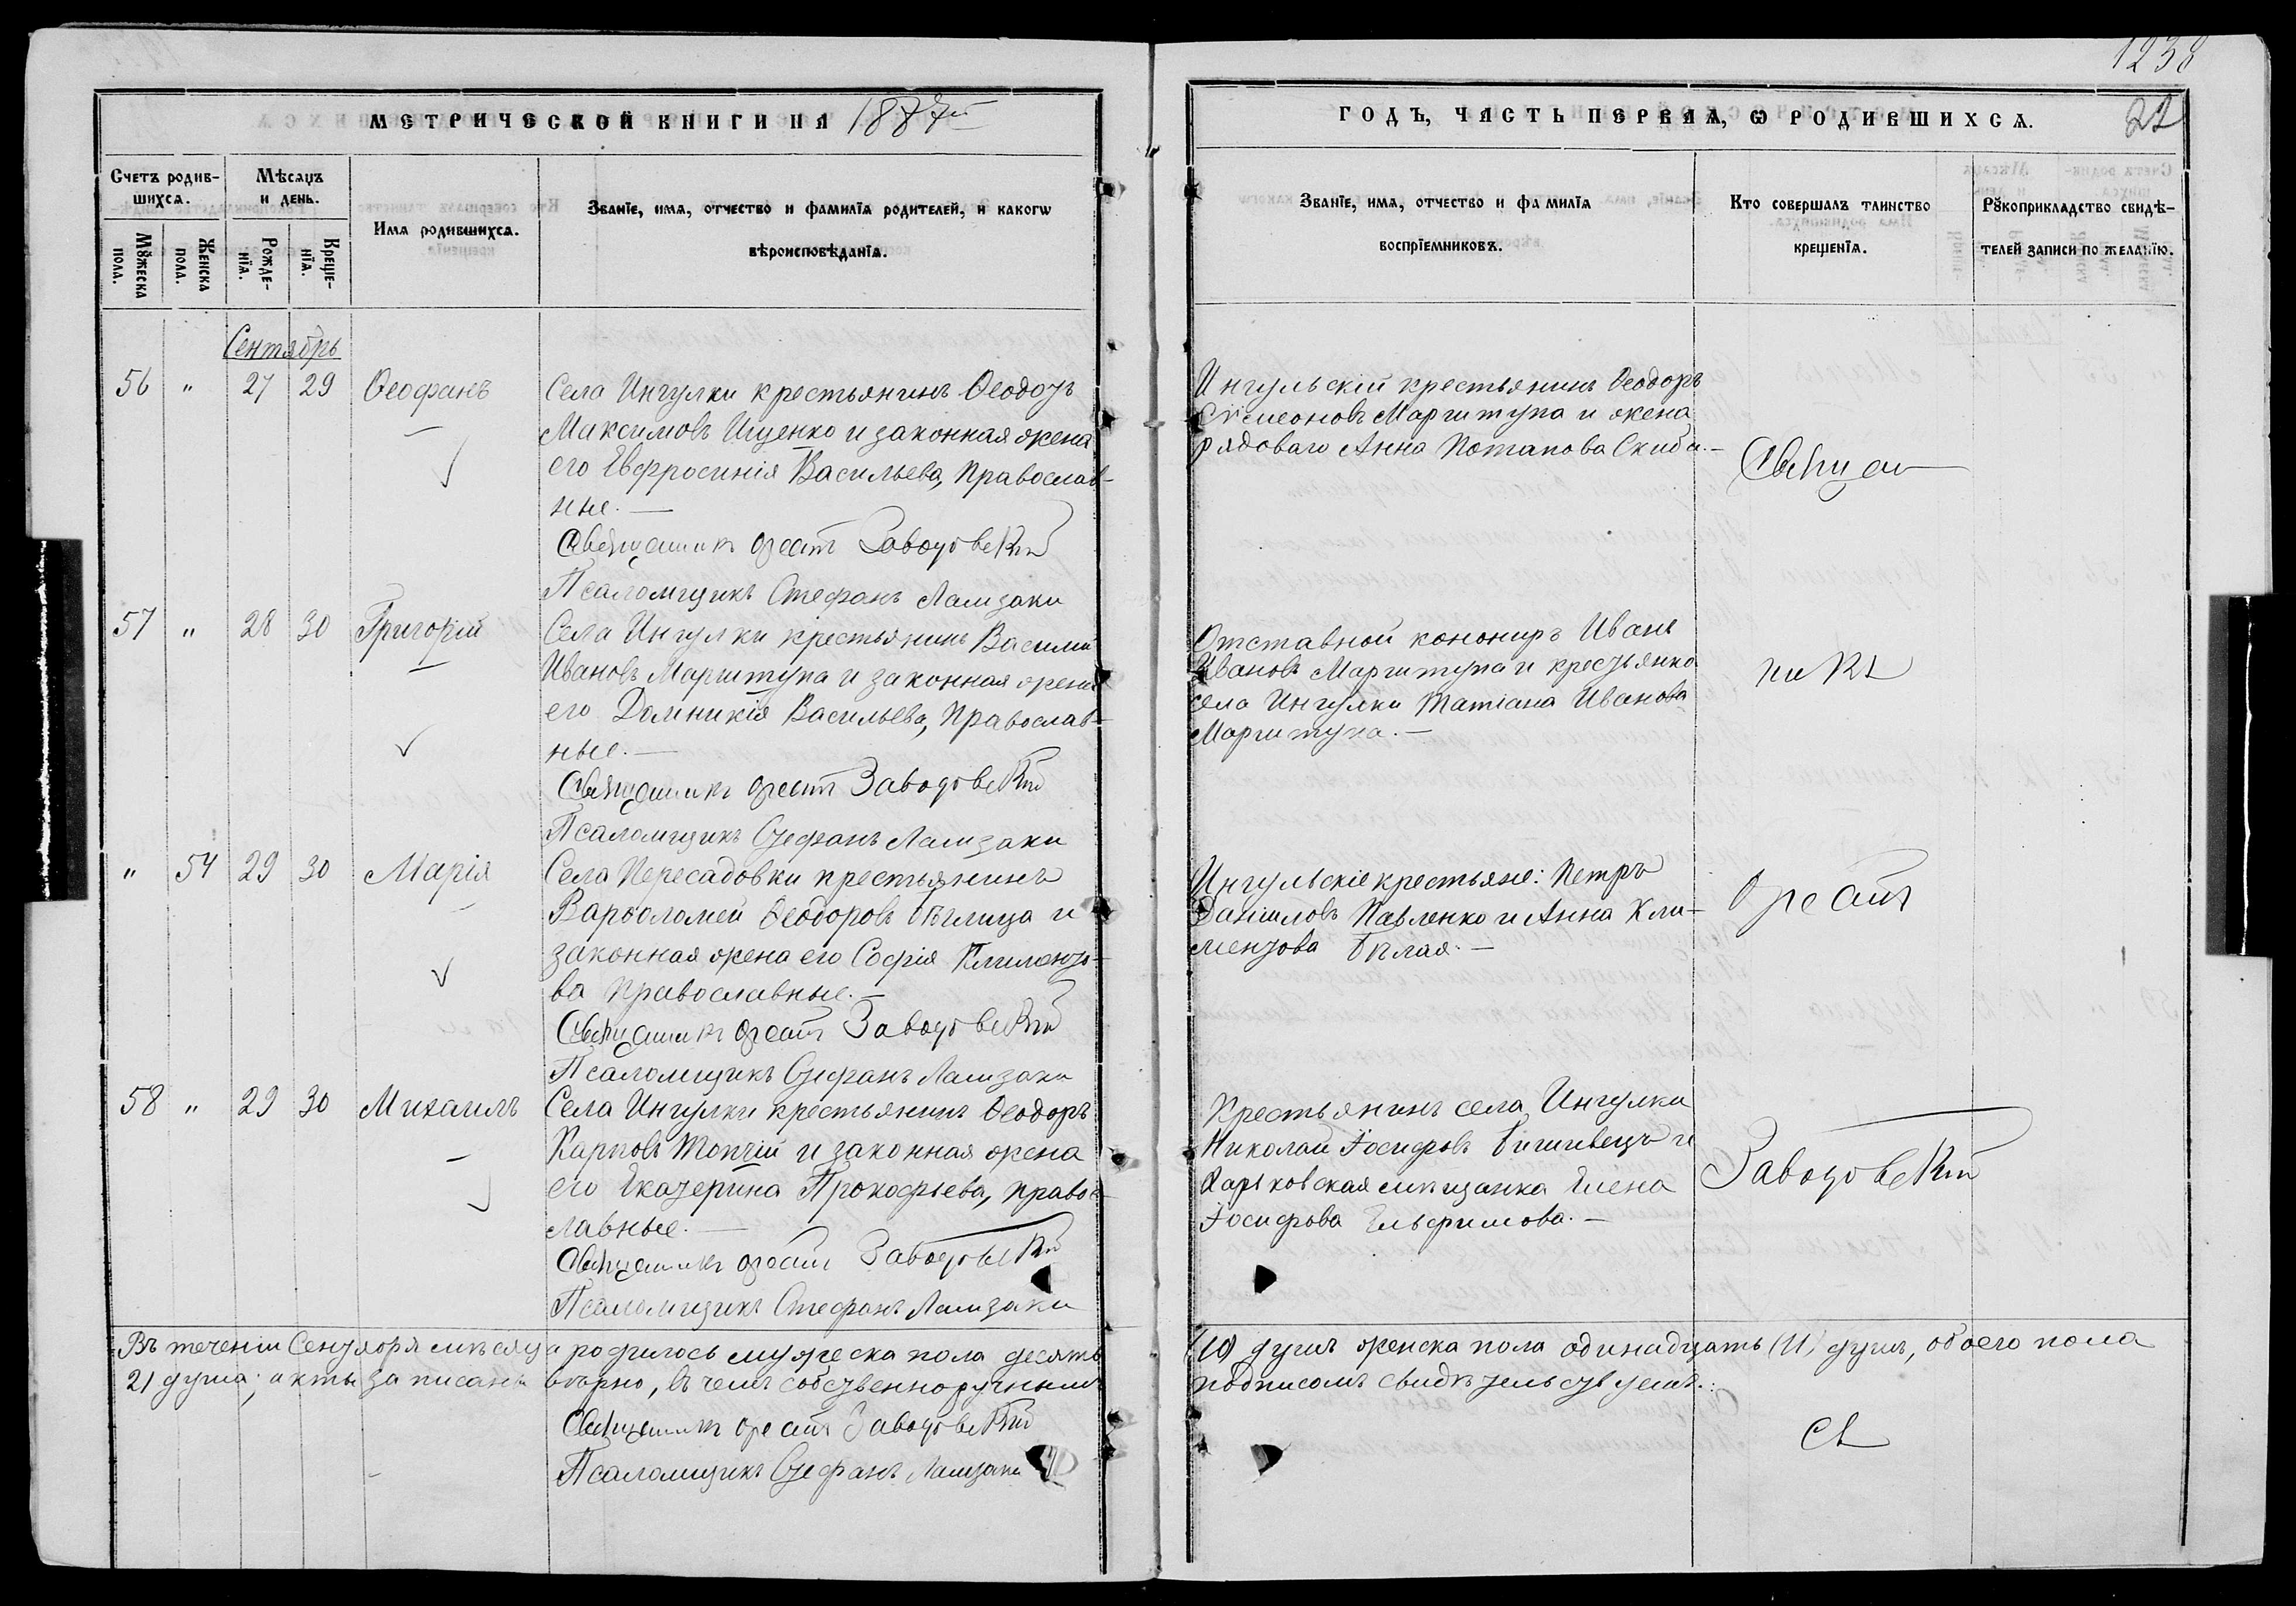 1238
МЕТРИЧЕСКОЙ КНИГИ НА 1887й
ГОДЪ, ЧАСТЬ ПЕРВАЯ, Ѡ РОДИВШИХСѦ.
22
Счетъ родив-
шихсѧ.
Мѣсяцъ
и день.
Мꙋжеска
пола.
Женска
пола.
Рожде-
нїѧ.
Креще-
нїѧ.
Имѧ родившихсѧ.
Званїе, имѧ, отчество и фамилїѧ родителей, и какогѡ
вѣроисповѣданїѧ.
Званїе, имѧ, отчество и фамилїѧ
воспрїемниковъ.
Кто совершалъ таинство
крещенїѧ.
Рꙋкоприкладство свидѣ-
телей записи по желанїю.
Сентябрь
56 " 27 29 Ѳеофанъ
Села Ингулки крестьянинъ Ѳеодоръ
Максимовъ Ищенко и законная жена
его Евфросинія Васильева, Православ-
ные. —
Священникъ Орестъ Заводовскій
Псаломщикъ Стефанъ Ламзаки
Ингульскій крестьянинъ Ѳеодоръ
Сѵмеоновъ Маргитупа и жена
рядоваго Анна Потапова Скиба. —
Священ
57 " 28 30 Григорій
Села Ингулки крестьянинъ Василій
Ивановъ Маргитупа и законная жена
его Домникія Васильева, Православ-
ные. —
Священникъ Орестъ Заводовскій
Псаломщикъ Стефанъ Ламзаки
Отставной конониръ Иванъ
Ивановъ Маргитупа и крестьянка
села Ингулки Татіана Иванова
Маргитупа. —
никъ
" 54 29 30 Марія
Села Пересадовки крестьянинъ
Варѳоломей Ѳеодоровъ Бѣлица и
законная жена его Софія Клименто-
ва Православные. —
Священникъ Орестъ Заводовскій
Псаломщикъ Стефанъ Ламзаки
Ингульскіе крестьяне: Петръ
Даніиловъ Павленко и Анна Кли-
ментова Бѣлая. —
Орестъ
58 " 29 30 Михаилъ
Села Ингулки крестьянинъ Ѳеодоръ
Карповъ Топчій и законная жена
его Екатерина Прокофьева, правос-
лавные. —
Священникъ Орестъ Заводовскій
Псаломщикъ Стефанъ Ламзаки
Крестьянинъ села Ингулки
Николай Іосифовъ и
Харьковская мѣщанка Елена
Іосифова Ельфимова. —
Заводовскій
Въ теченіи Сентября мѣсяца родилось мужеска пола десять (10) душъ женска пола одинадцать (11) душъ, обоего пола
21 душа; акты записаны вѣрно, въ чемъ собственноручнымъ подписомъ свидѣтельствуемъ.:
Священникъ Орестъ Заводовскій
Псаломщикъ Стефанъ Ламзаки